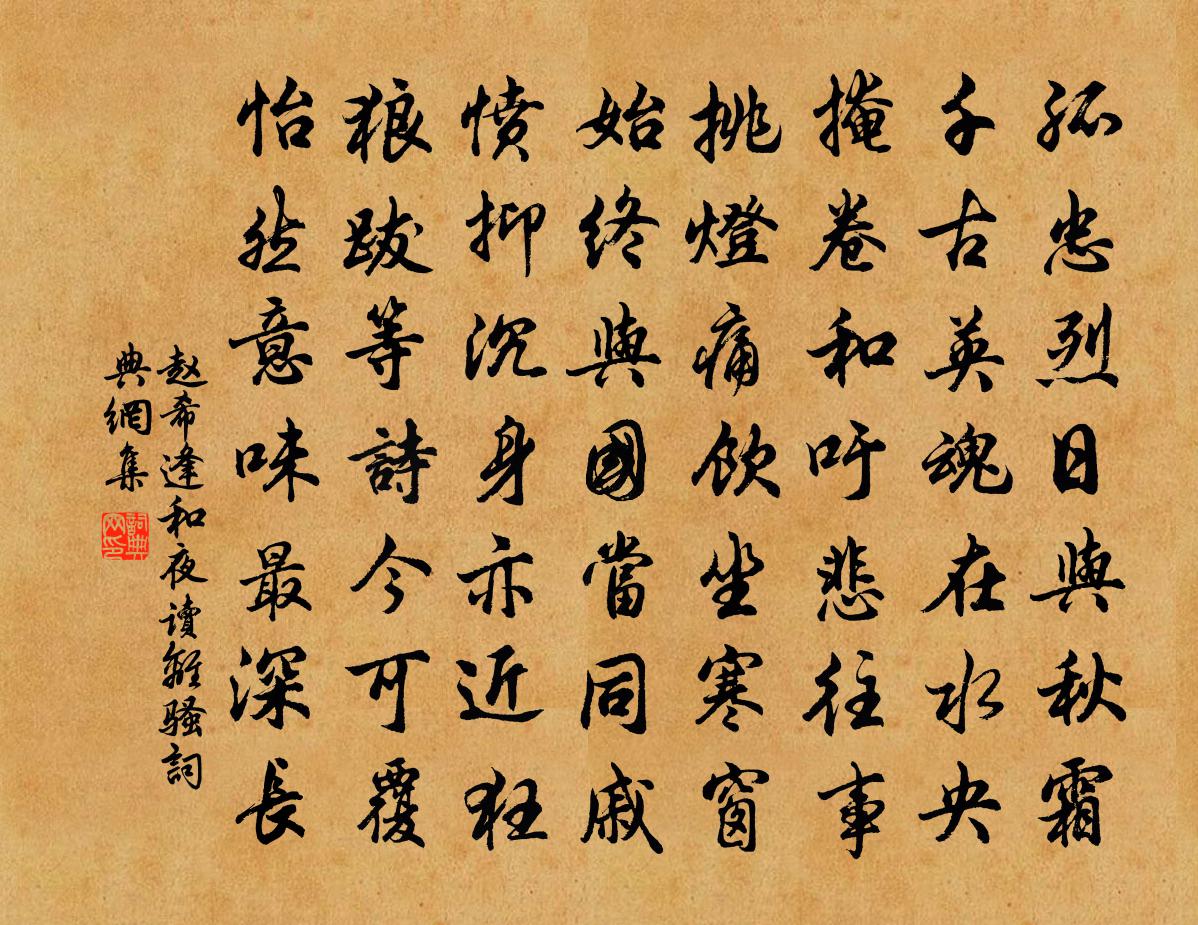 孤忠烈日與秋霜
千古英魂在水央
掩卷和吁悲往事
挑燈痛飲坐寒窗
始終與國當同戚
憤抑沉身亦近狂
狼跋等詩今可覆
怡然意味最深長
赵希逢和夜讀離骚詞
典網集
詞典
网印